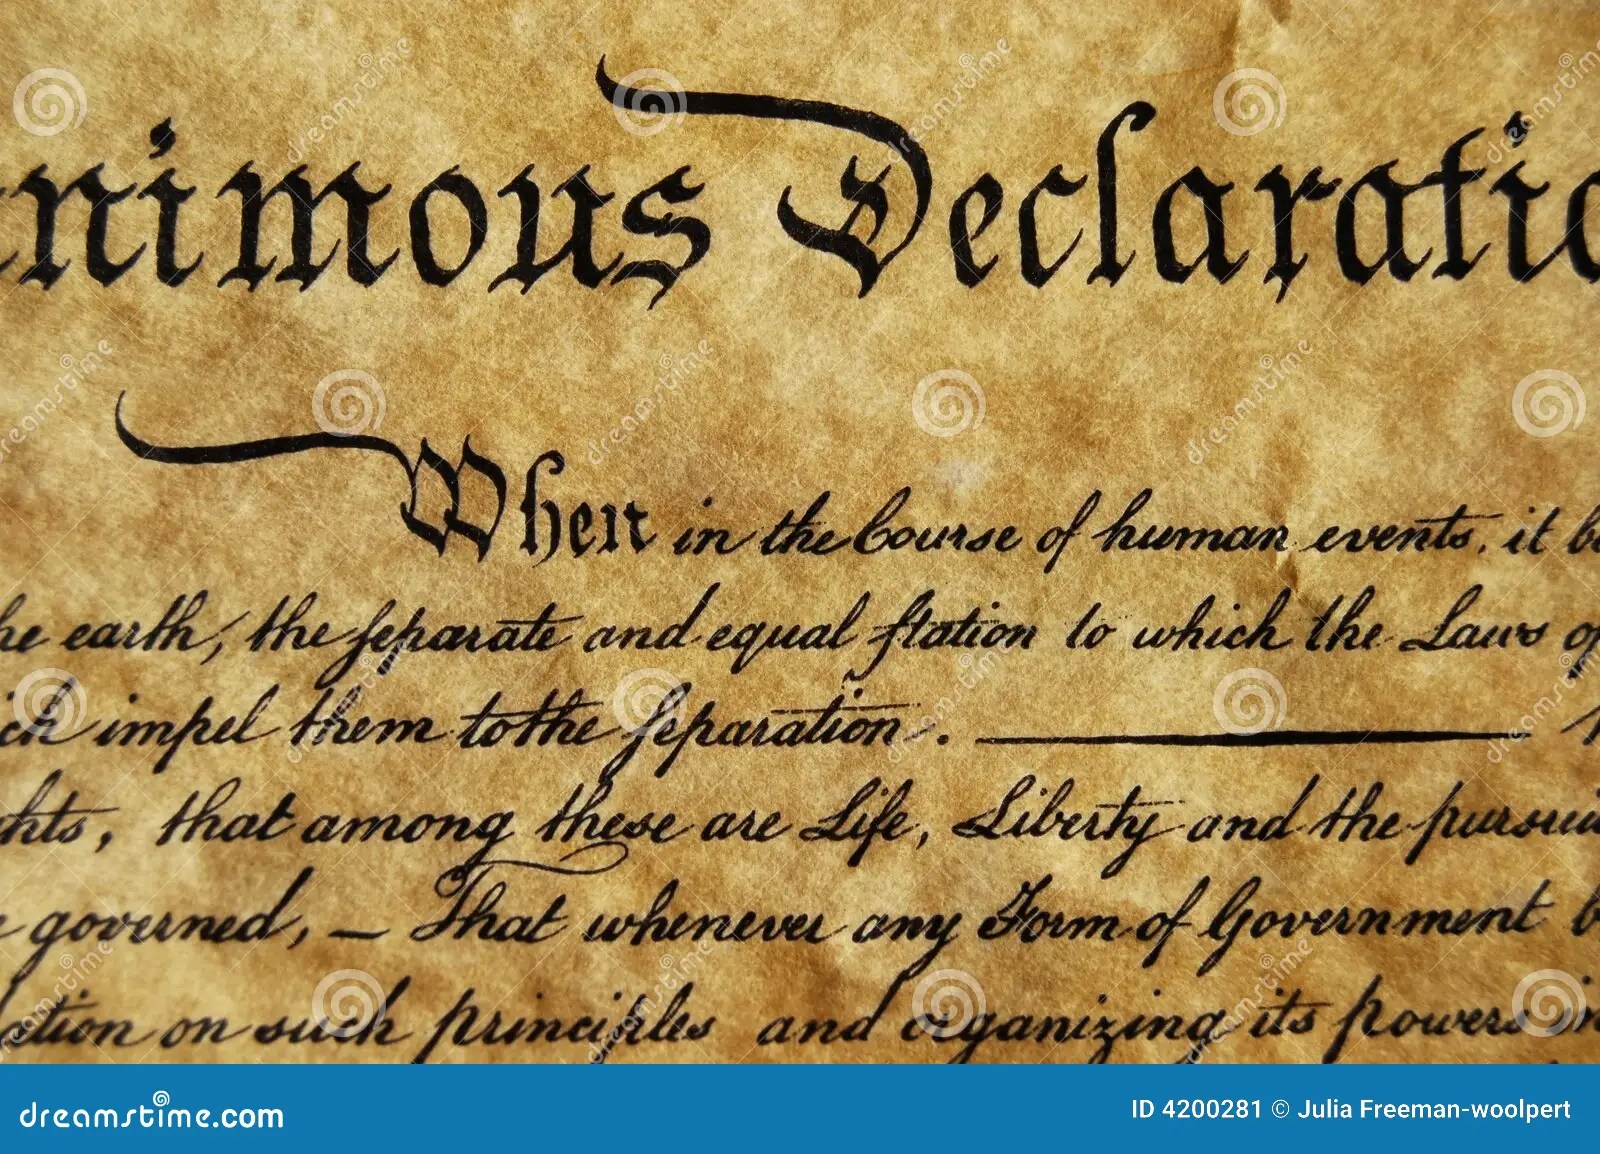 nimous Declaratio
When in the Course of human events, it be
he earth, the separate and equal station to which the Laws of
ich impel them to the separation. —
ghts, that among these are Life, Liberty and the pursuit
e governed, — That whenever any Form of Government b
ation on such principles and organizing its powers in
dreamstime.com
ID 4200281 © Julia Freeman-woolpert